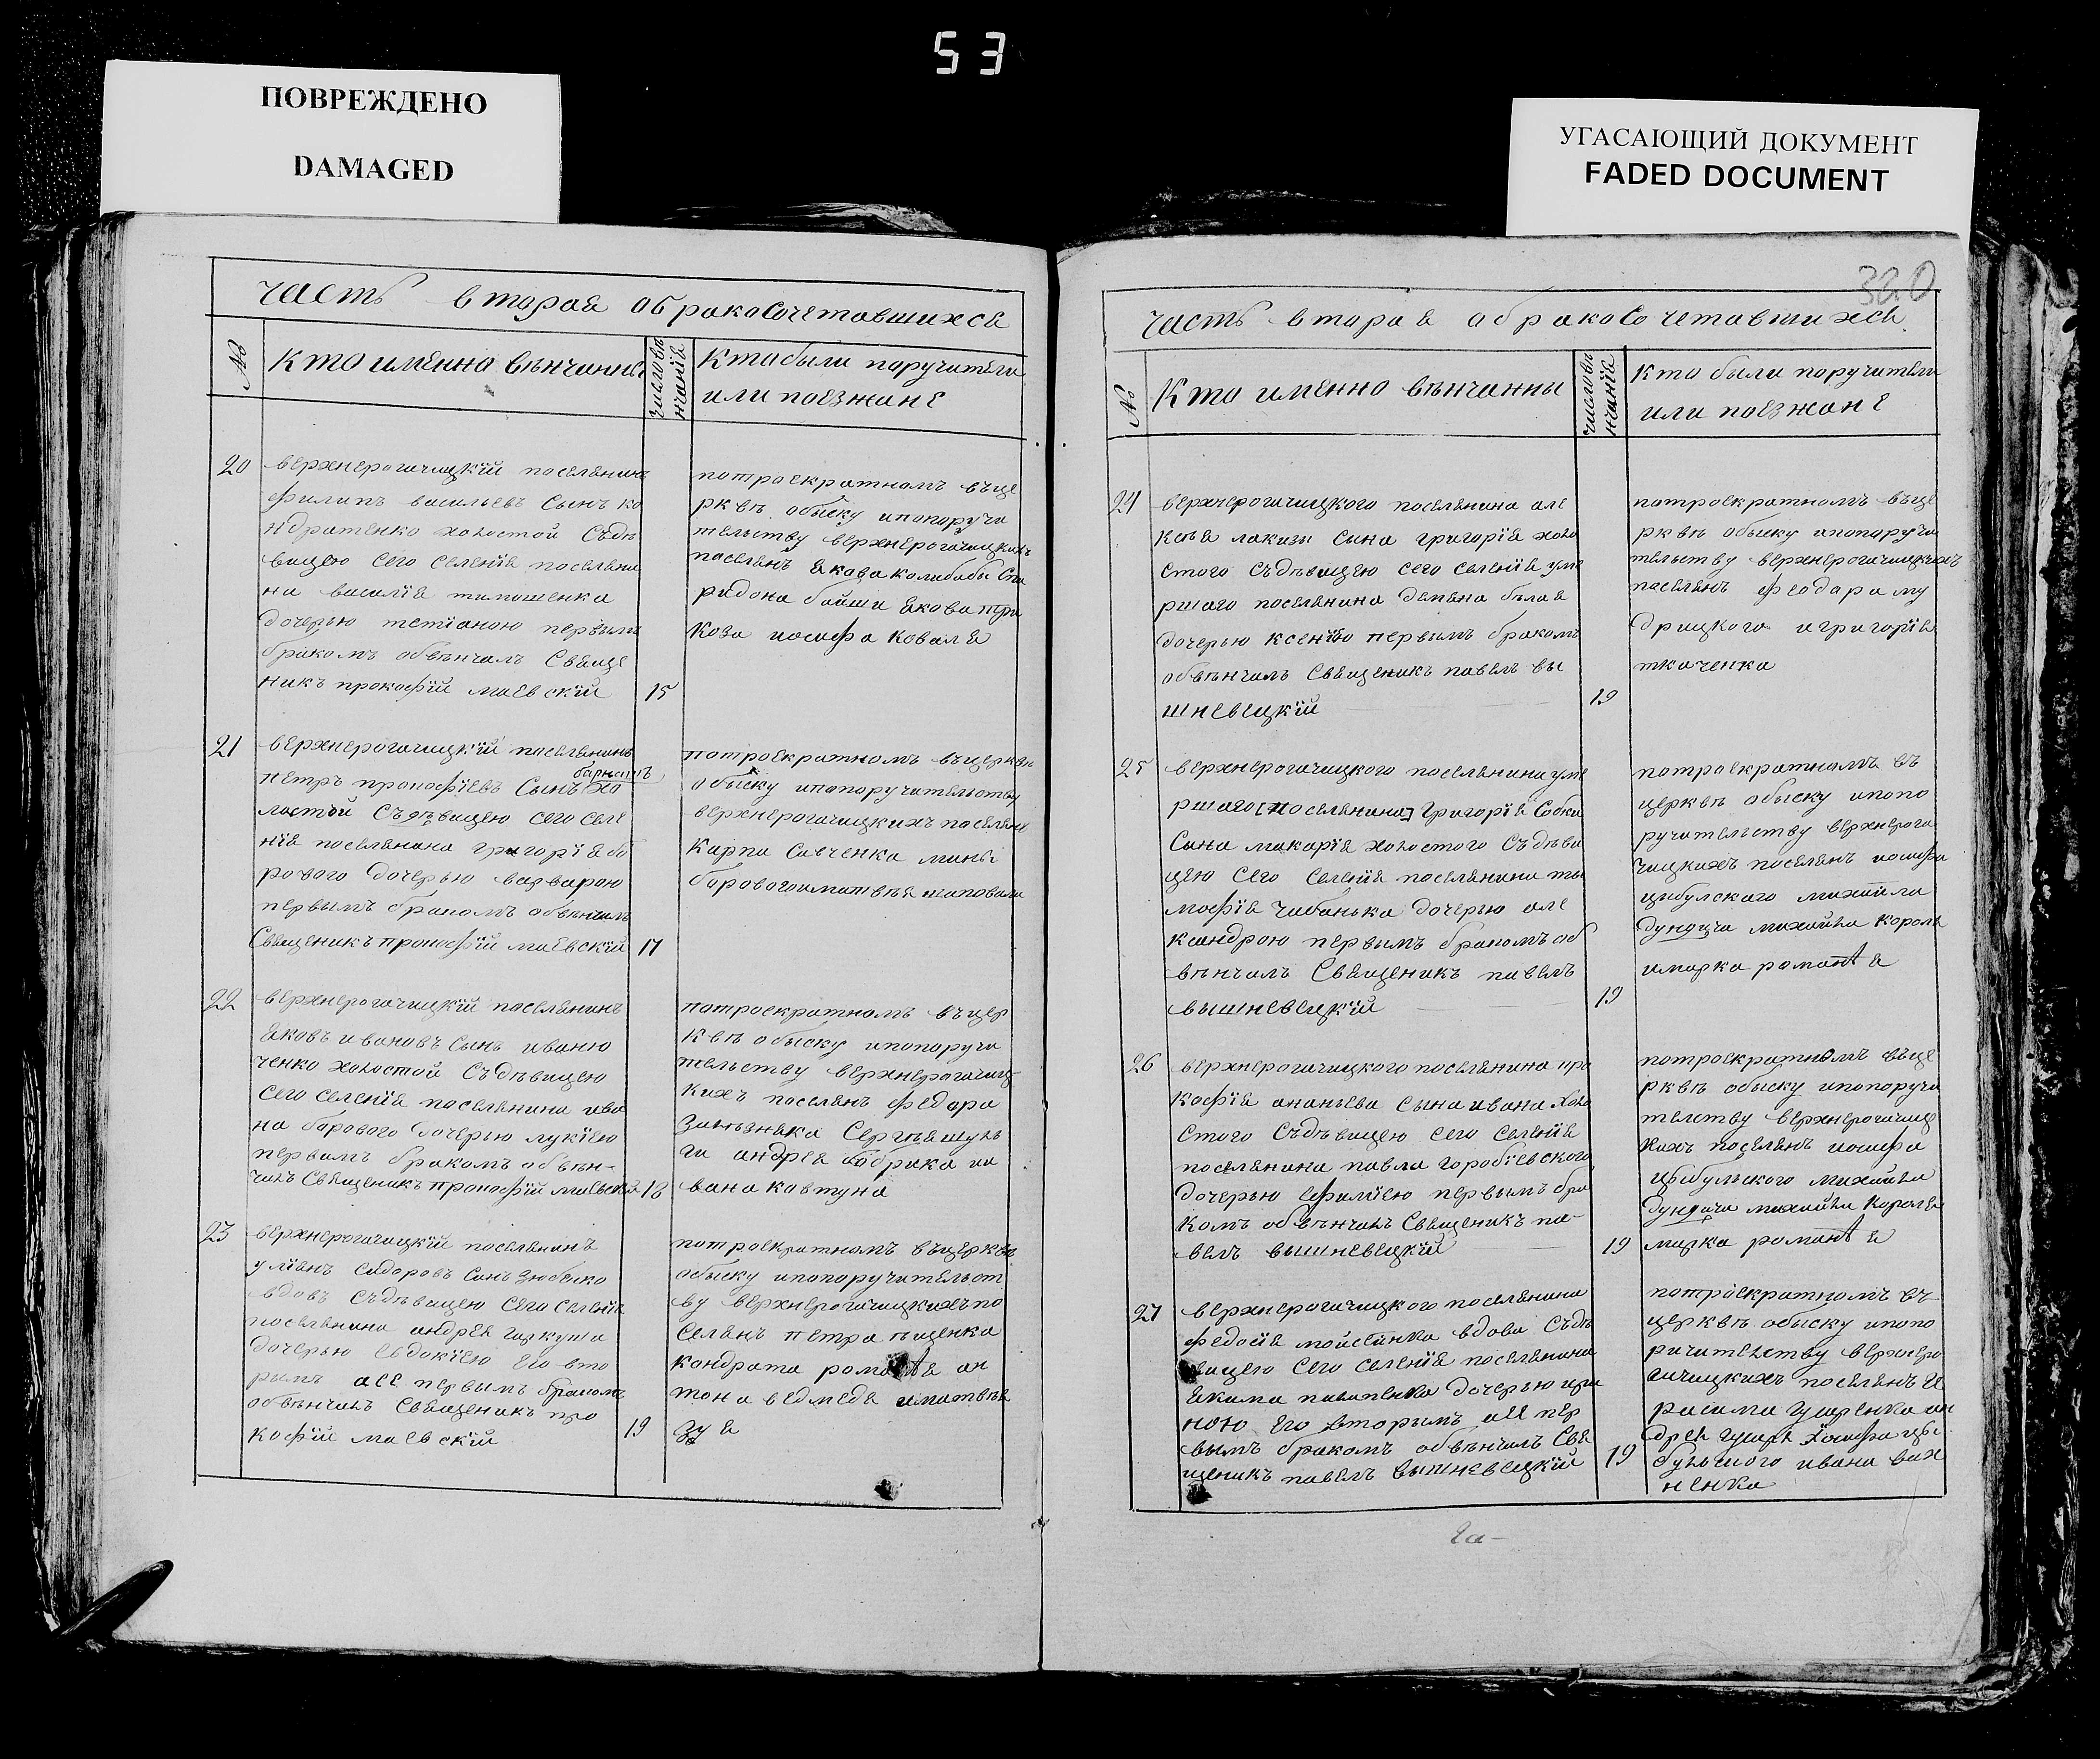 53
ПОВРЕЖДЕНО
DAMAGED
УГАСАЮЩИЙ ДОКУМЕНТ
FADED DOCUMENT
часть вторая обракосочетавшихся
№
кто именно вѣнчанны
число вѣ
нчанія
кто были поручители
или поезжане
20
верхнерогачицкїй поселянинъ
филипъ васильевъ сынъ ко
ндратенко холостой съдѣ
вицею сего селенїя поселяни
на василїя тимошенка
дочерью тетїаною первымъ
бракомъ обвѣнчалъ свяще
никъ прокофїй маевскїй
15
потроекратномъ въце
рквѣ обыску ипопоручи
тельству верхнерогачицкихъ
поселянъ якова колибабы спи
ридона байши якова
кова иосифа коваля
21
верхнерогачицкїй поселянинъ
петръ прокофїевъ сынъ хо
лостой съдѣвицею сего селе
нїя поселянина григорїя бо
рового дочерью варварою
первымъ бракомъ обвѣнчалъ
Священикъ прокофїй маевскїй
17
потроекратномъ въцерквѣ
обыску ипопоручительству
верхнерогачицкихъ поселянъ
карпа савченка мины
борового иматвѣя шаповала
22
верхнерогачицкїй поселянинъ
яковъ ивановъ сынъ иваню
ченко холостой съдѣвицею
сего селенїя поселянина ива
на борового дочерью лукїею
первымъ бракомъ обвѣн-
чалъ Священикъ прокофїй маевскїй
18
потроекратномъ въцер
квѣ обыску ипопоручи
тельству верхнерогачиц
кихъ поселянъ федора
сергѣя шуль
ги андрея бобрика и
вана ковтуна
23
верхнерогачицкїй поселянинъ
улїянъ сидоровъ сынъ зюбенко
вдовъ съдѣвицею сего селенїя
поселянина андрея гаркуша
дочерью евдокїею его вто
рымъ аее первымъ бракомъ
обвѣнчалъ Священикъ про
кофїй маевскїй
19
потроекратномъ въцерквѣ
обыску ипопоручительст
ву верхнерогачицкихъ по
селянъ петра пащенка
кондрата ан
тона ведмедя иматвѣя
зуя
320
часть вторая обракосочетавшихся
№
Кто именно вѣнчанны
число вѣ
нчанїя
Кто были поручители
или поезжане
24
верхнерогачицкого поселянина але
ксѣя лакизы сына григорїя холо
стого съдѣвицею сего селенїя уме
ршаго поселянина демяна бѣлая
дочерью ксенїею первымъ бракомъ
обвѣнчалъ Священикъ павелъ вы
шневецкїй
19
потроекратномъ въце
рквѣ обыску ипопоручи
тельству верхнерогачицкихъ
поселянъ феодара му
дрицкого игригорїя
ткаченка
25
верхнерогачицкого поселянина уме
ршаго [поселянина] григорїя собки
сына макарїя холостого съдѣви
цею сего селенїя поселянина ти
мофїя чабанька дочерью але
ксандрою первымъ бракомъ об
вѣнчалъ Священикъ павелъ
вышневецкїй
19
потроекратномъ въ
церквѣ обыску ипопо
ручительству верхнерога
чицкихъ поселянъ иосифа
цыбулского михайла
дундича михайла короля
имарка романтя
26
верхнерогачицкого поселянина про
кофїя ананьева сына ивана холо
стого съдѣвицею сего селенїя
поселянина павла горобїевского
дочерью ефимїею первымъ бра
комъ обвѣнчалъ Священикъ па-
велъ вышневецкїй
19
потроекратномъ въце
рквѣ обыску ипопоручи
телству верхнерогачиц
кихъ поселянъ иосифа
цыбульского михайла
дундича михайла короля
марка романтя
27
верхнерогачицкого поселянина
федосїя мойсѣнка вдова съдѣ
вицею сего селенїя поселянина
якима павленка дочерью ири
ною его вторымъ аее пер
вымъ бракомъ обвѣнчалъ Свя
щеникъ павелъ вышневецкїй
19
потроекратномъ въ
церквѣ обыску ипопо
ричителству верхнеро
гачицкихъ поселянъ ге
расима гущенка ан
дрея иосифа цы
булского ивана вах
ненка